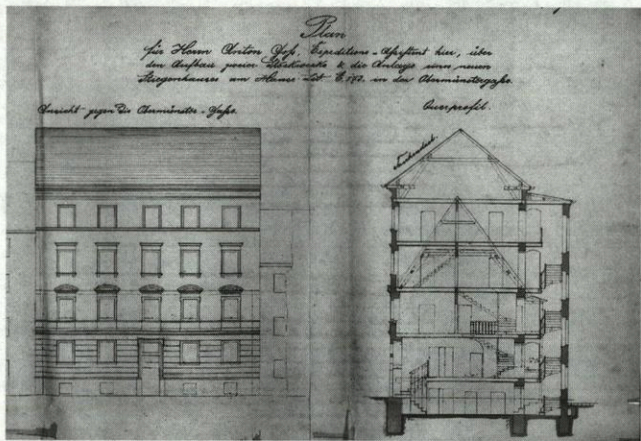 Plan
für Herrn Anton Goß, Expeditions-Assistent hier, über
den Aufbau zweier Stockwerke & die Anlage eines neuen
Stiegenhauses am Hause Lit. E. 142. in der Obermünstergasse.
Ansicht gegen die Obermünster-Gasse.
Querprofil.